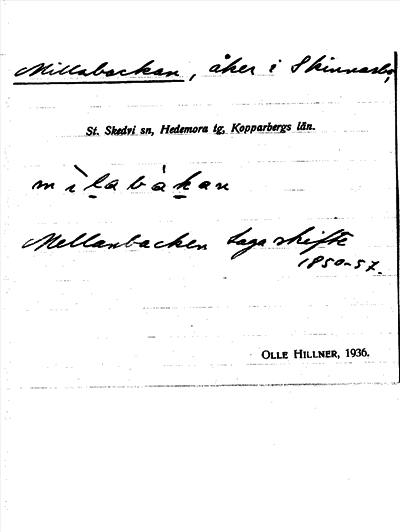 Millabackan, åker i Skinnarbo,
St. Skedvi sn, Hedemora tg, Kopparbergs län.
mìlabàkan
Mellanbacken Laga skifte
1850-57.
OLLE HILLNER, 1936.